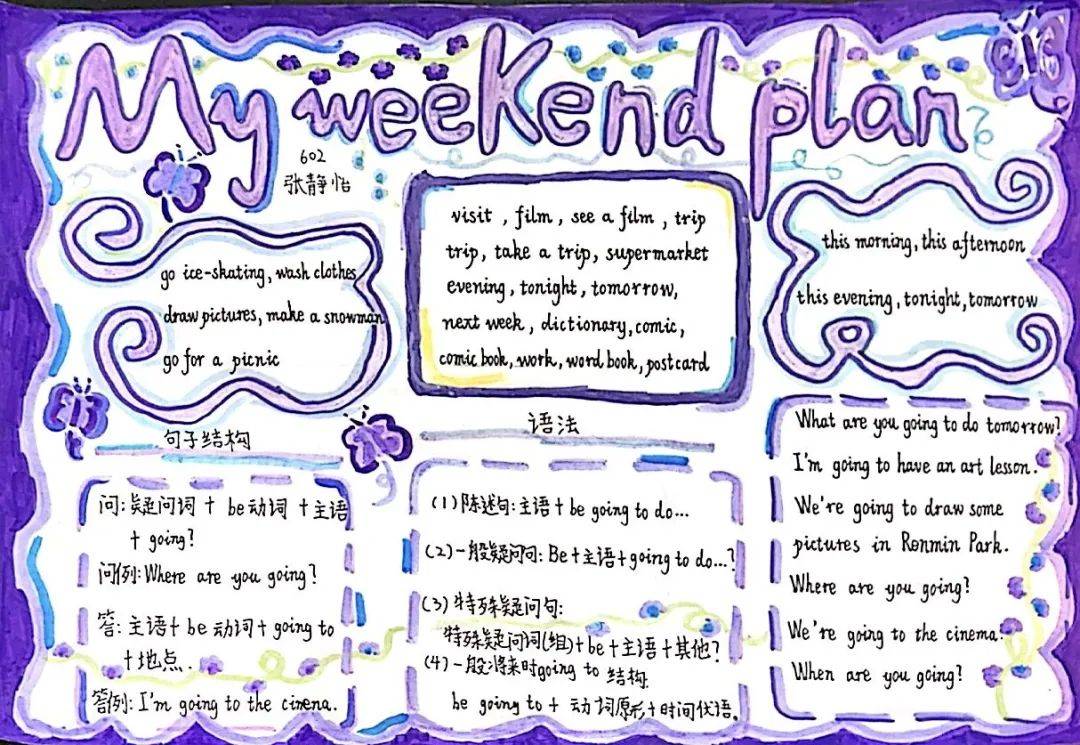 My weekend plan
602
张静怡
go ice-skating, wash clothes
draw pictures, make a snowman
go for a picnic
visit , film , see a film , trip
trip, take a trip, supermarket
evening , tonight , tomorrow,
next week , dictionary, comic,
comic book, work, word book, postcard
this morning, this afternoon
this evening, tonight, tomorrow
句子结构
问:疑问词 + be动词 +主语
+ going?
问例:Where are you going?
答: 主语+ be 动词+ going to
+地点.
答例: I'm going to the cinema.
语法
(1) 陈述句:主语+ be going to do...
(2)一般疑问句: Be+主语+going to do...?
(3) 特殊疑问句:
特殊疑问词(组)+be+主语+其他?
(4)一般将来时going to 结构.
be going to + 动词原形+时间状语。
What are you going to do tomorrow?
I'm going to have an art lesson.
We're going to draw some
pictures in Renmin Park.
Where are you going?
We're going to the cinema.
When are you going?